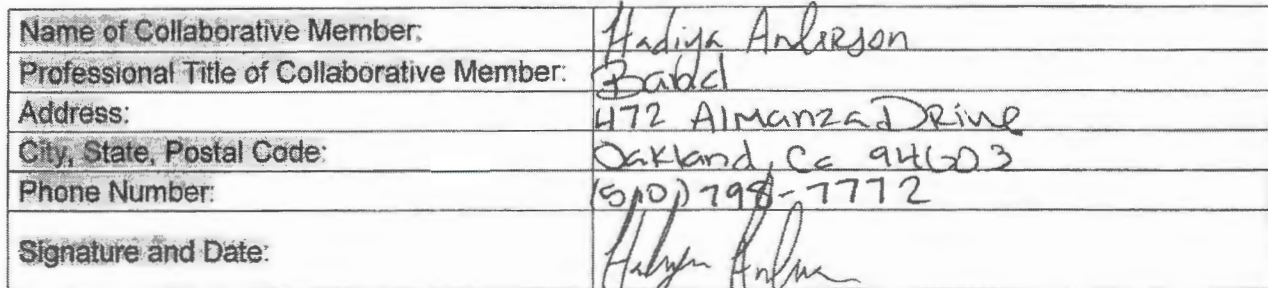 Name of Collaborative Member: Hadiya Anderson
Professional Title of Collaborative Member:
Address: 472 Almanza Drive
City, State, Postal Code: Oakland, Ca 94603
Phone Number: (510) 798-7772
Signature and Date: